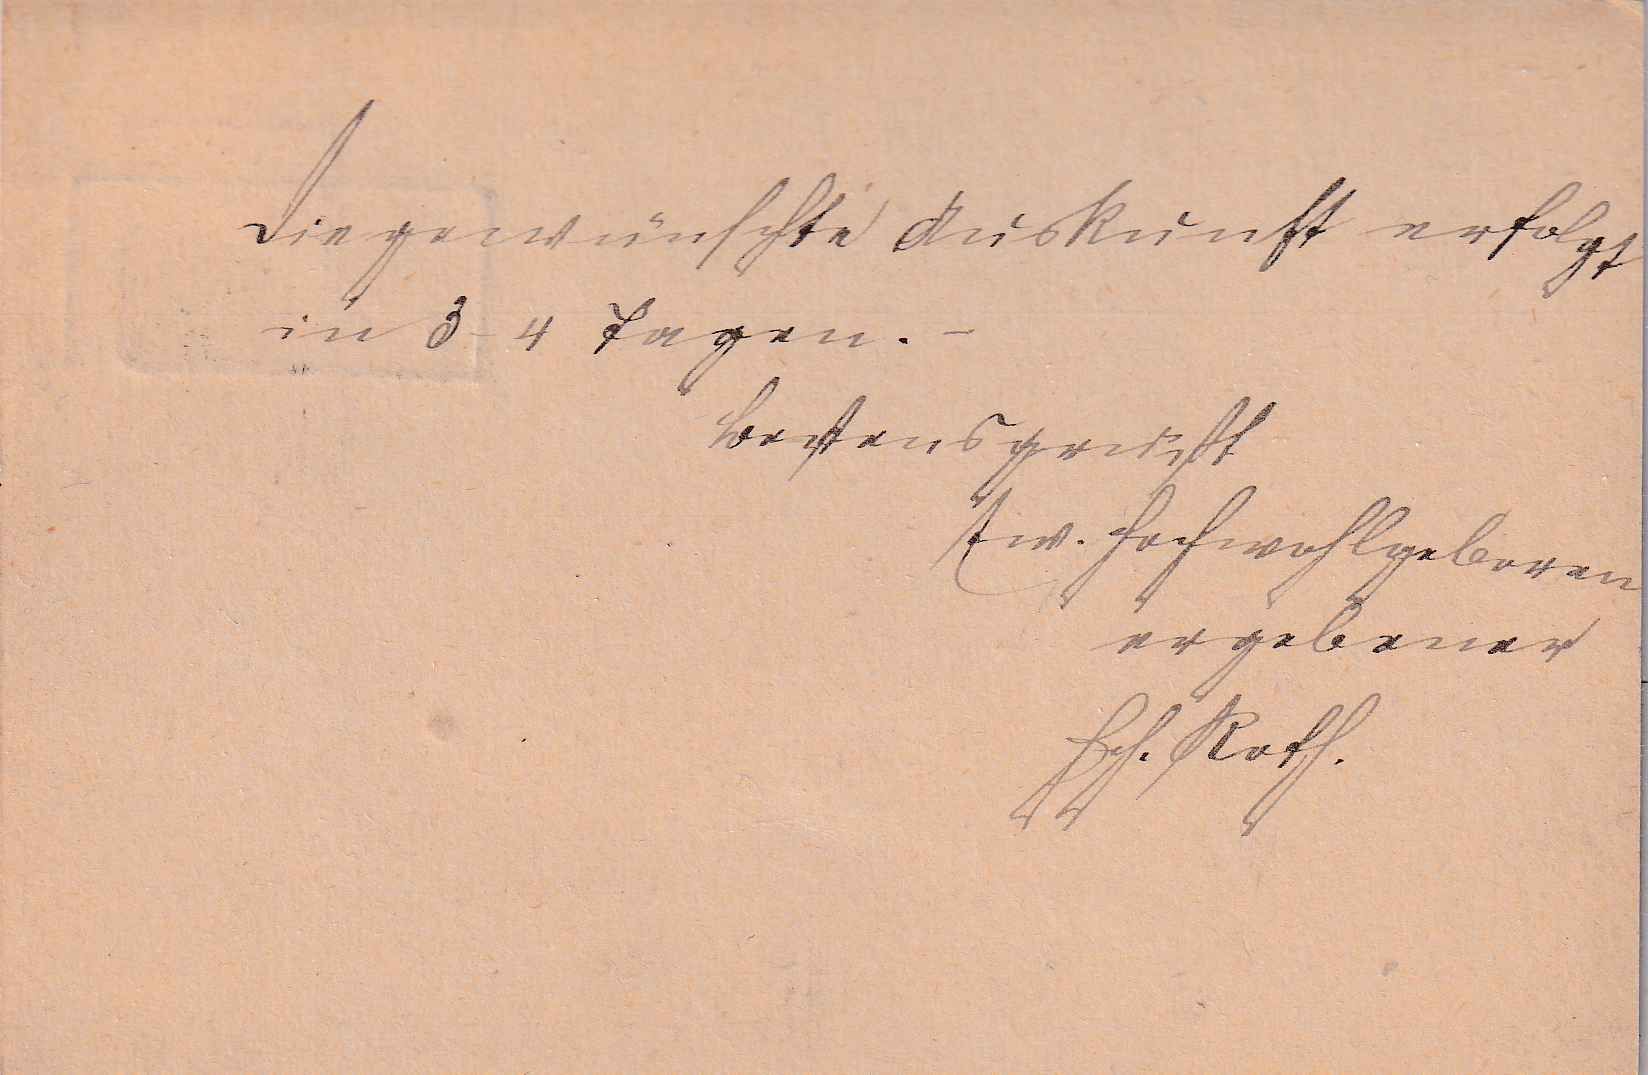 Die gewünschte Auskunft erfolgt
in 3-4 Tagen. –
Bestens grüsst
Ew. Hochwohlgeboren
ergebener
Hch. Roth.